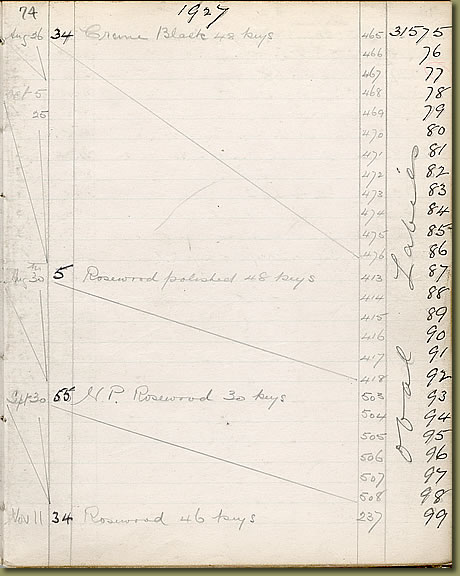 74 1927
Aug 26 34 Crome Black 48 keys 465 31575
466 76
467 77
Oct 5 468 78
25 469 79
470 80
471 81
472 82
473 83
474 84
475 85
476 86
30 5 Rosewood polished 48 keys 413 87
414 88
415 89
416 90
417 91
418 92
Sept 30 55 N.P. Rosewood 30 keys 503 93
504 94
505 95
506 96
507 97
508 98
Nov 11 34 Rosewood 46 keys 237 99
Oval Labels